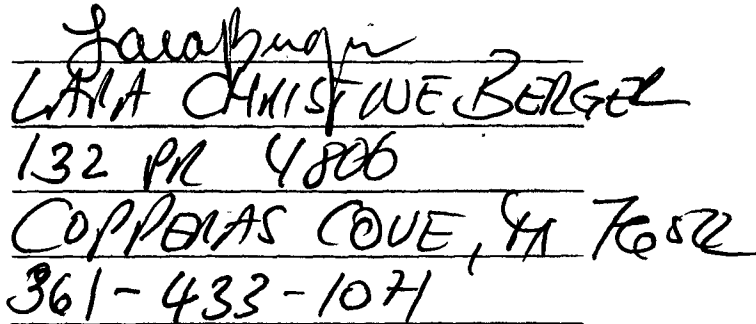 Lara Berger
LARA CHRISTINE BERGER
132 PR 4806
COPPERAS COVE, TX 76522
361-433-1071